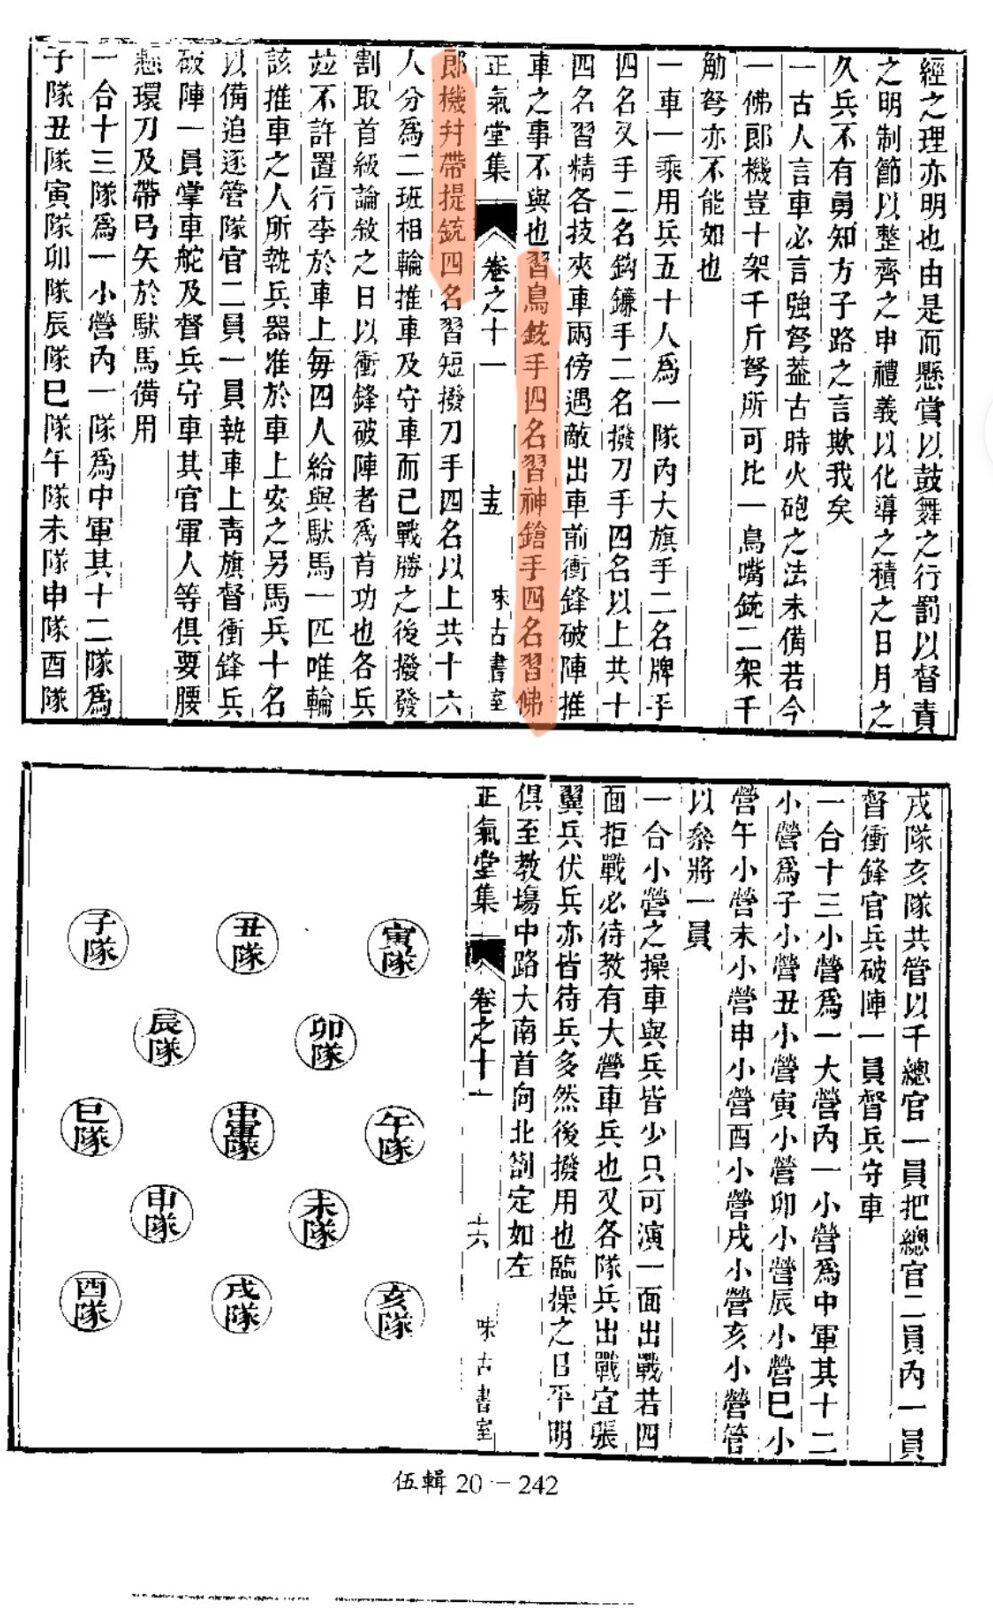 經之理亦明也由是而懸賞以鼓舞之行罰以督責
之明制節以整齊之申禮義以化導之積之日月之
久兵不有勇知方子路之言欺我矣
一古人言車必言強弩葢古時火砲之法未備若今
一佛郎機豈十架千斤弩所可比一鳥嘴銃二架千
觔弩亦不能如也
一車一乘用兵五十人爲一隊內大旗手二名牌手
四名叉手二名鈎鐮手二名撥刀手四名以上共十
四名習精各技夾車兩傍遇敵出車前衝鋒破陣推
車之事不與也習鳥銃手四名習神鎗手四名習佛
正氣堂集 卷之十一 十五 味古書室
郎機幷帶提銃四名習短撥刀手四名以上共十六
人分爲二班相輪推車及守車而已戰勝之後撥發
割取首級論敘之日以衝鋒破陣者爲首功也各兵
竝不許置行李於車上每四人給與馱馬一匹唯輪
該推車之人所執兵器准於車上安之另馬兵十名
以備追逐管隊官二員一員執車上靑旗督衝鋒兵
破陣一員掌車舵及督兵守車其官軍人等俱要腰
懸環刀及帶弓矢於馱馬備用
一合十三隊爲一小營內一隊爲中軍其十二隊爲
子隊丑隊寅隊卯隊辰隊巳隊午隊未隊申隊酉隊
戌隊亥隊共管以千總官一員把總官二員內一員
督衝鋒官兵破陣一員督兵守車
一合十三小營爲一大營內一小營爲中軍其十二
小營爲子小營丑小營寅小營卯小營辰小營巳小
營午小營未小營申小營酉小營戌小營亥小營管
以叅將一員
一合小營之操車與兵皆少只可演一面出戰若四
面拒戰必待教有大營車兵也又各隊兵出戰宜張
翼兵伏兵亦皆待兵多然後撥用也臨操之日平明
俱至教場中路大南首向北劄定如左
正氣堂集 卷之十一 十六 味古書室
寅隊
丑隊
子隊
卯隊
辰隊
午隊
中軍隊
巳隊
未隊
申隊
亥隊
戌隊
酉隊
伍輯 20－242